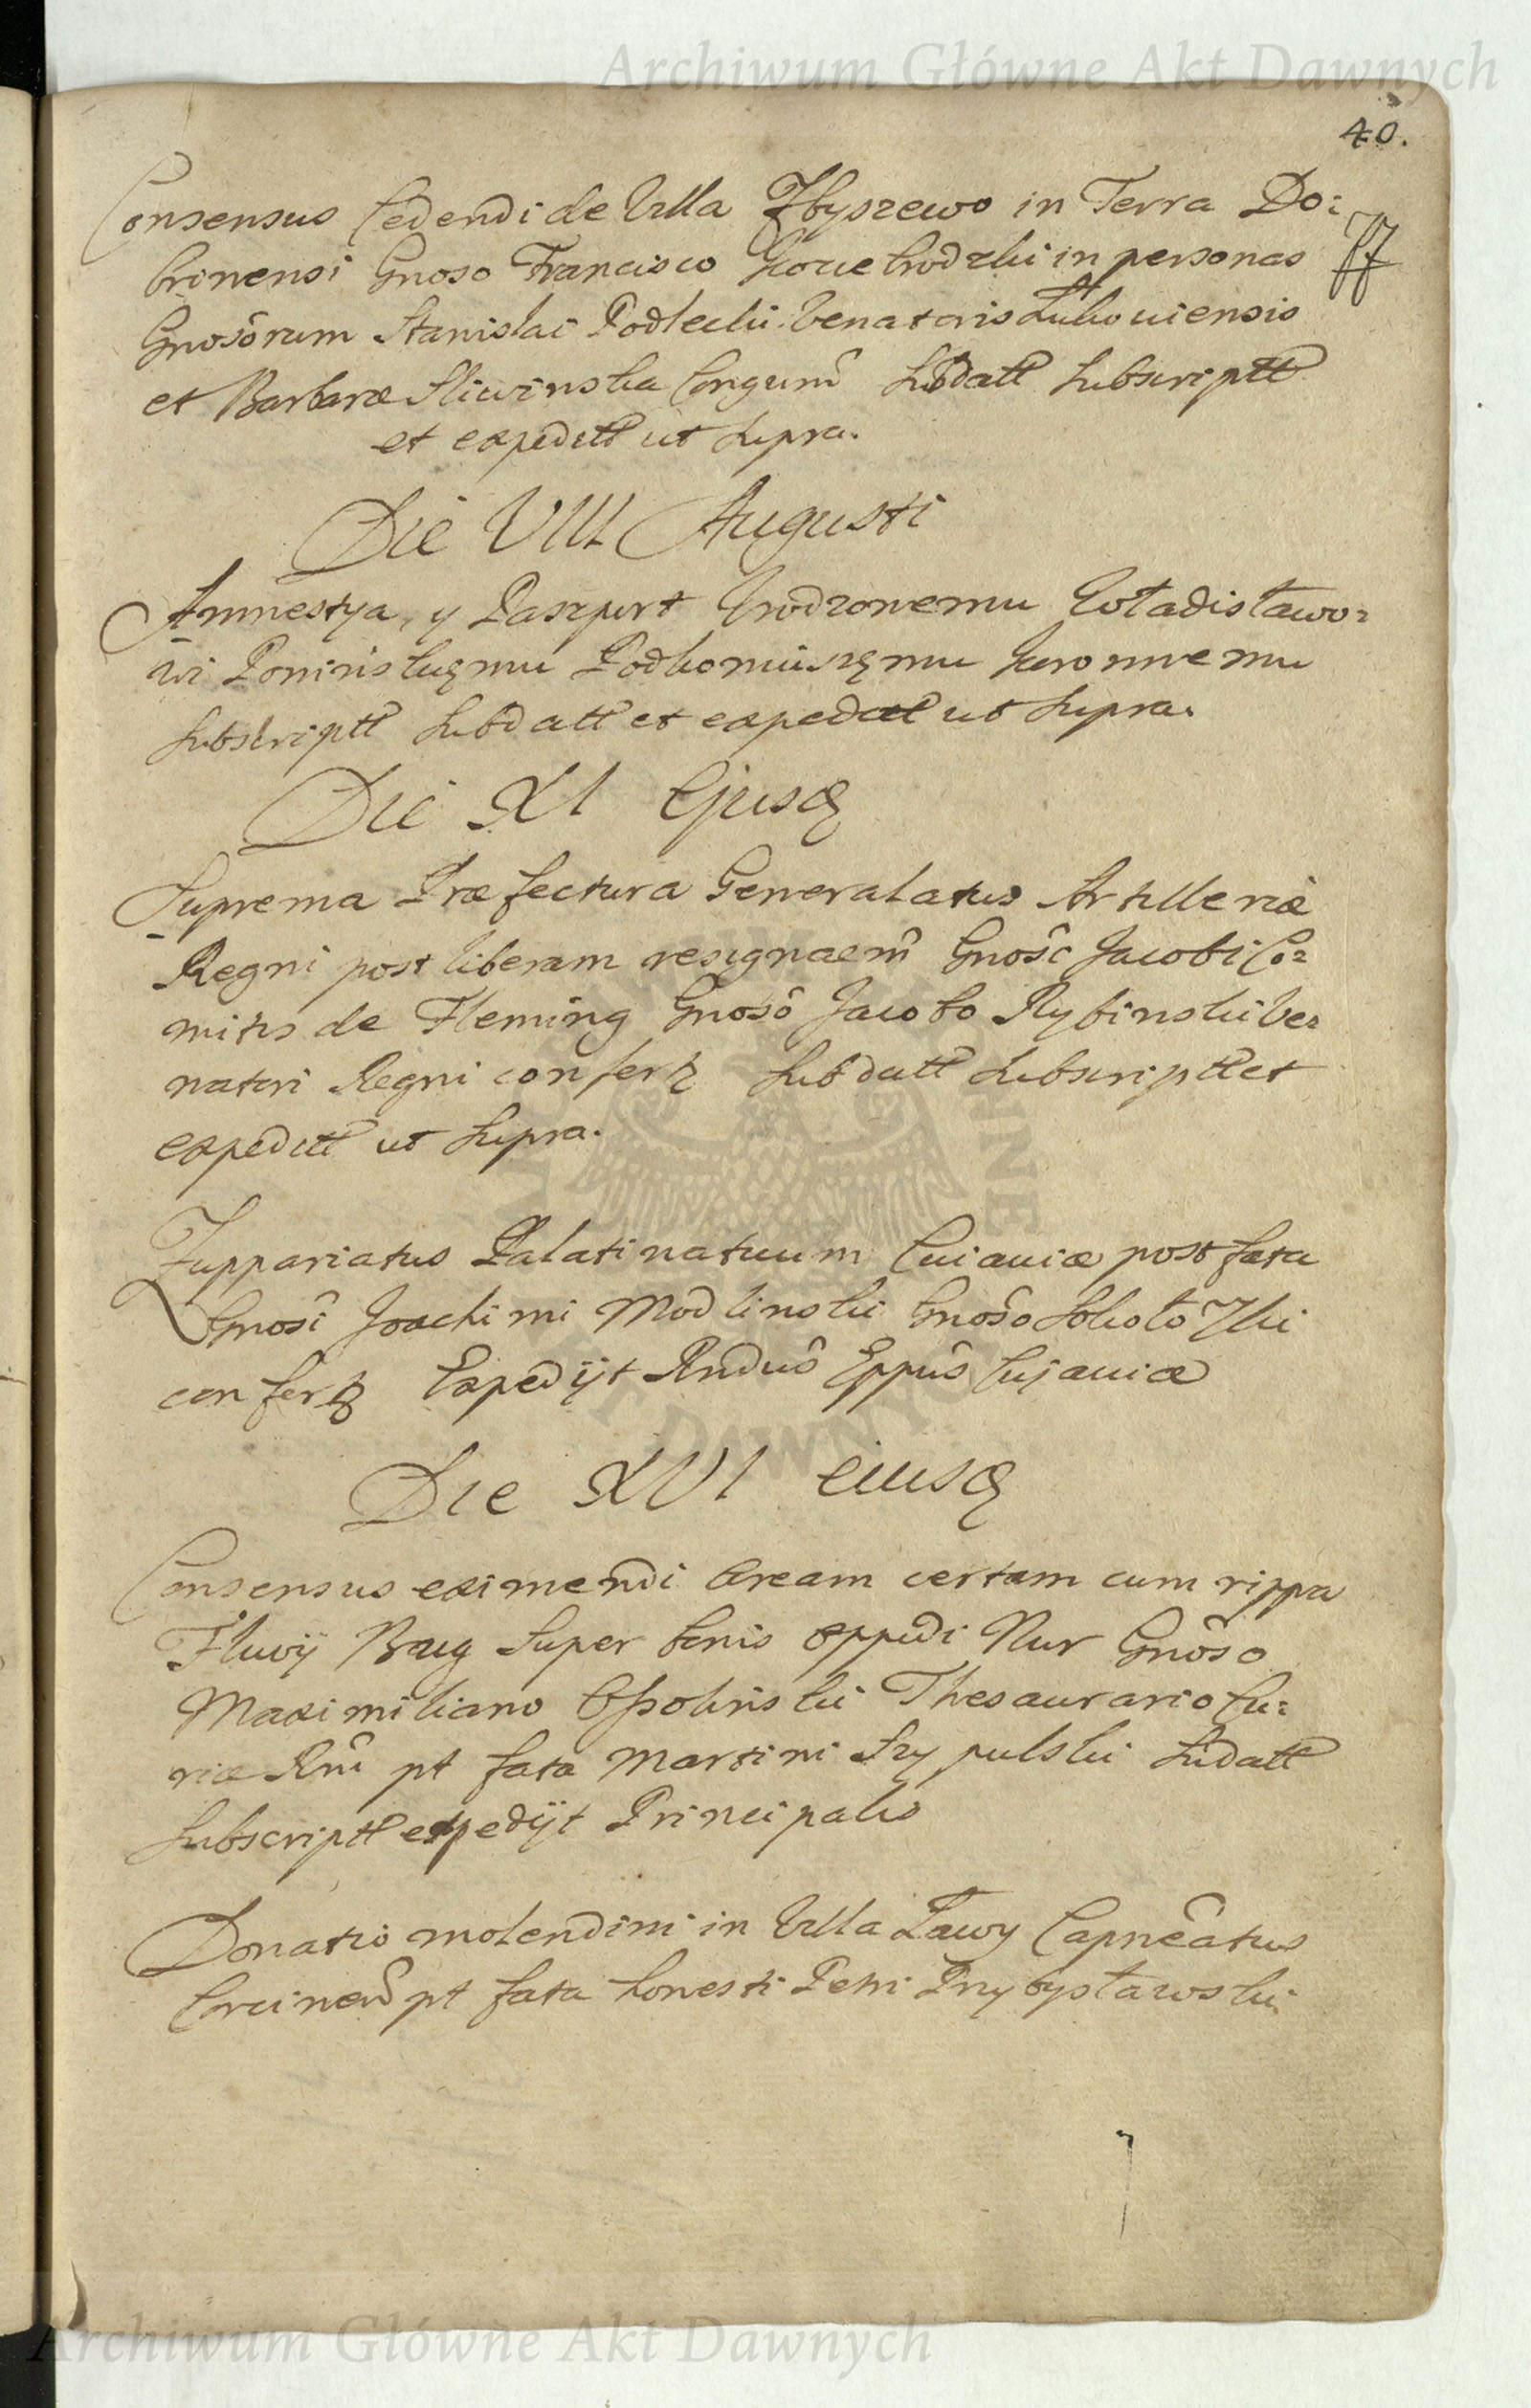 Archiwum Główne Akt Dawnych
40.
Consensus Cedendi de Villa Zbyszewo in Terra Do:
brinensi Gnoso Francisco in personas
Gnosorum Stanislai Podlecki Venatoris Lukoviensis
et Barbaræ Sliwinska Congum Subdatt Subscriptt
et expeditt ut supra.
Die VIII Augusti
Amnestya, y Paszport Urodzonemu Władisławo:
wi Poninskięmu Podkomuszęmu Koronnemu
Subscriptt Subdatt et expedatt ut Supra.
Die XI Ejusq
Suprema Præfectura Generalatus Artilleriæ
Regni post liberam resignaem Gnosi Jacobi Co:
mitis de Fleming Gnoso Jacobo Rybinski Ve:
natori Regni confertz Subdatt Subscriptt et
expeditt ut Supra.
Zuppariatus Palatinatuum Cuiaviæ post fata
Gnosi Joachimi Modlinski Gnoso
confertz Expedijt Rndus Eppus Cujaviæ
Die XVI eiusq
Consensus eximendi Aream certam cum rippa
Fluvij Bug Super bonis oppidi Nur Gnoso
Maximiliano Ossolinski Thesaurario Cu:
riæ Rni pt fata Martini Szypulski Subdatt
Subscriptt expedijt Principalis
Donatio molendini in Villa Ławy Capneatus
pt fata honesti Petri Przybysławski
Archiwum Główne Akt Dawnych